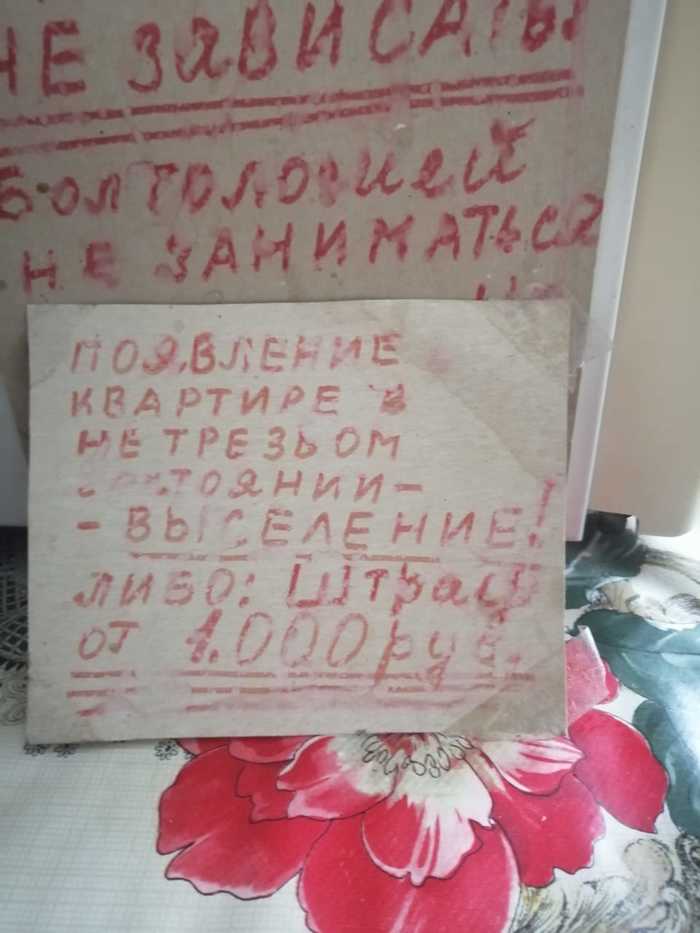 НЕ ЗАВИСАТЬ!
БОЛТОЛОГИЕЙ
НЕ ЗАНИМАТЬСЯ
ПОЯВЛЕНИЕ
КВАРТИРЕ В
НЕ ТРЕЗЬОМ
СОСТОЯНИИ-
- ВЫСЕЛЕНИЕ!
ЛИБО: Штраф
от 1.000 руб.